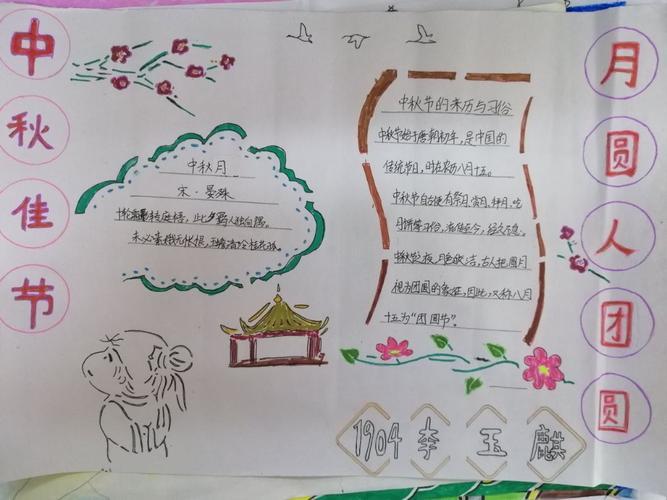 中秋佳节
中秋月
宋·晏殊
轮霜影转庭梧，此夕羁人独向隅。
未必素娥无怅恨，玉蟾清冷桂花孤。
中秋节的来历与习俗
中秋节始于唐朝初年，是中国的
传统节日，时在农历八月十五。
中秋节自古便有祭月、赏月、拜月、吃
月饼等习俗，流传至今，经久不息。
中秋之夜，月色皎洁，古人把圆月
视为团圆的象征，因此，又称八月
十五为“团圆节”。
月圆人团圆
1904 李玉麒